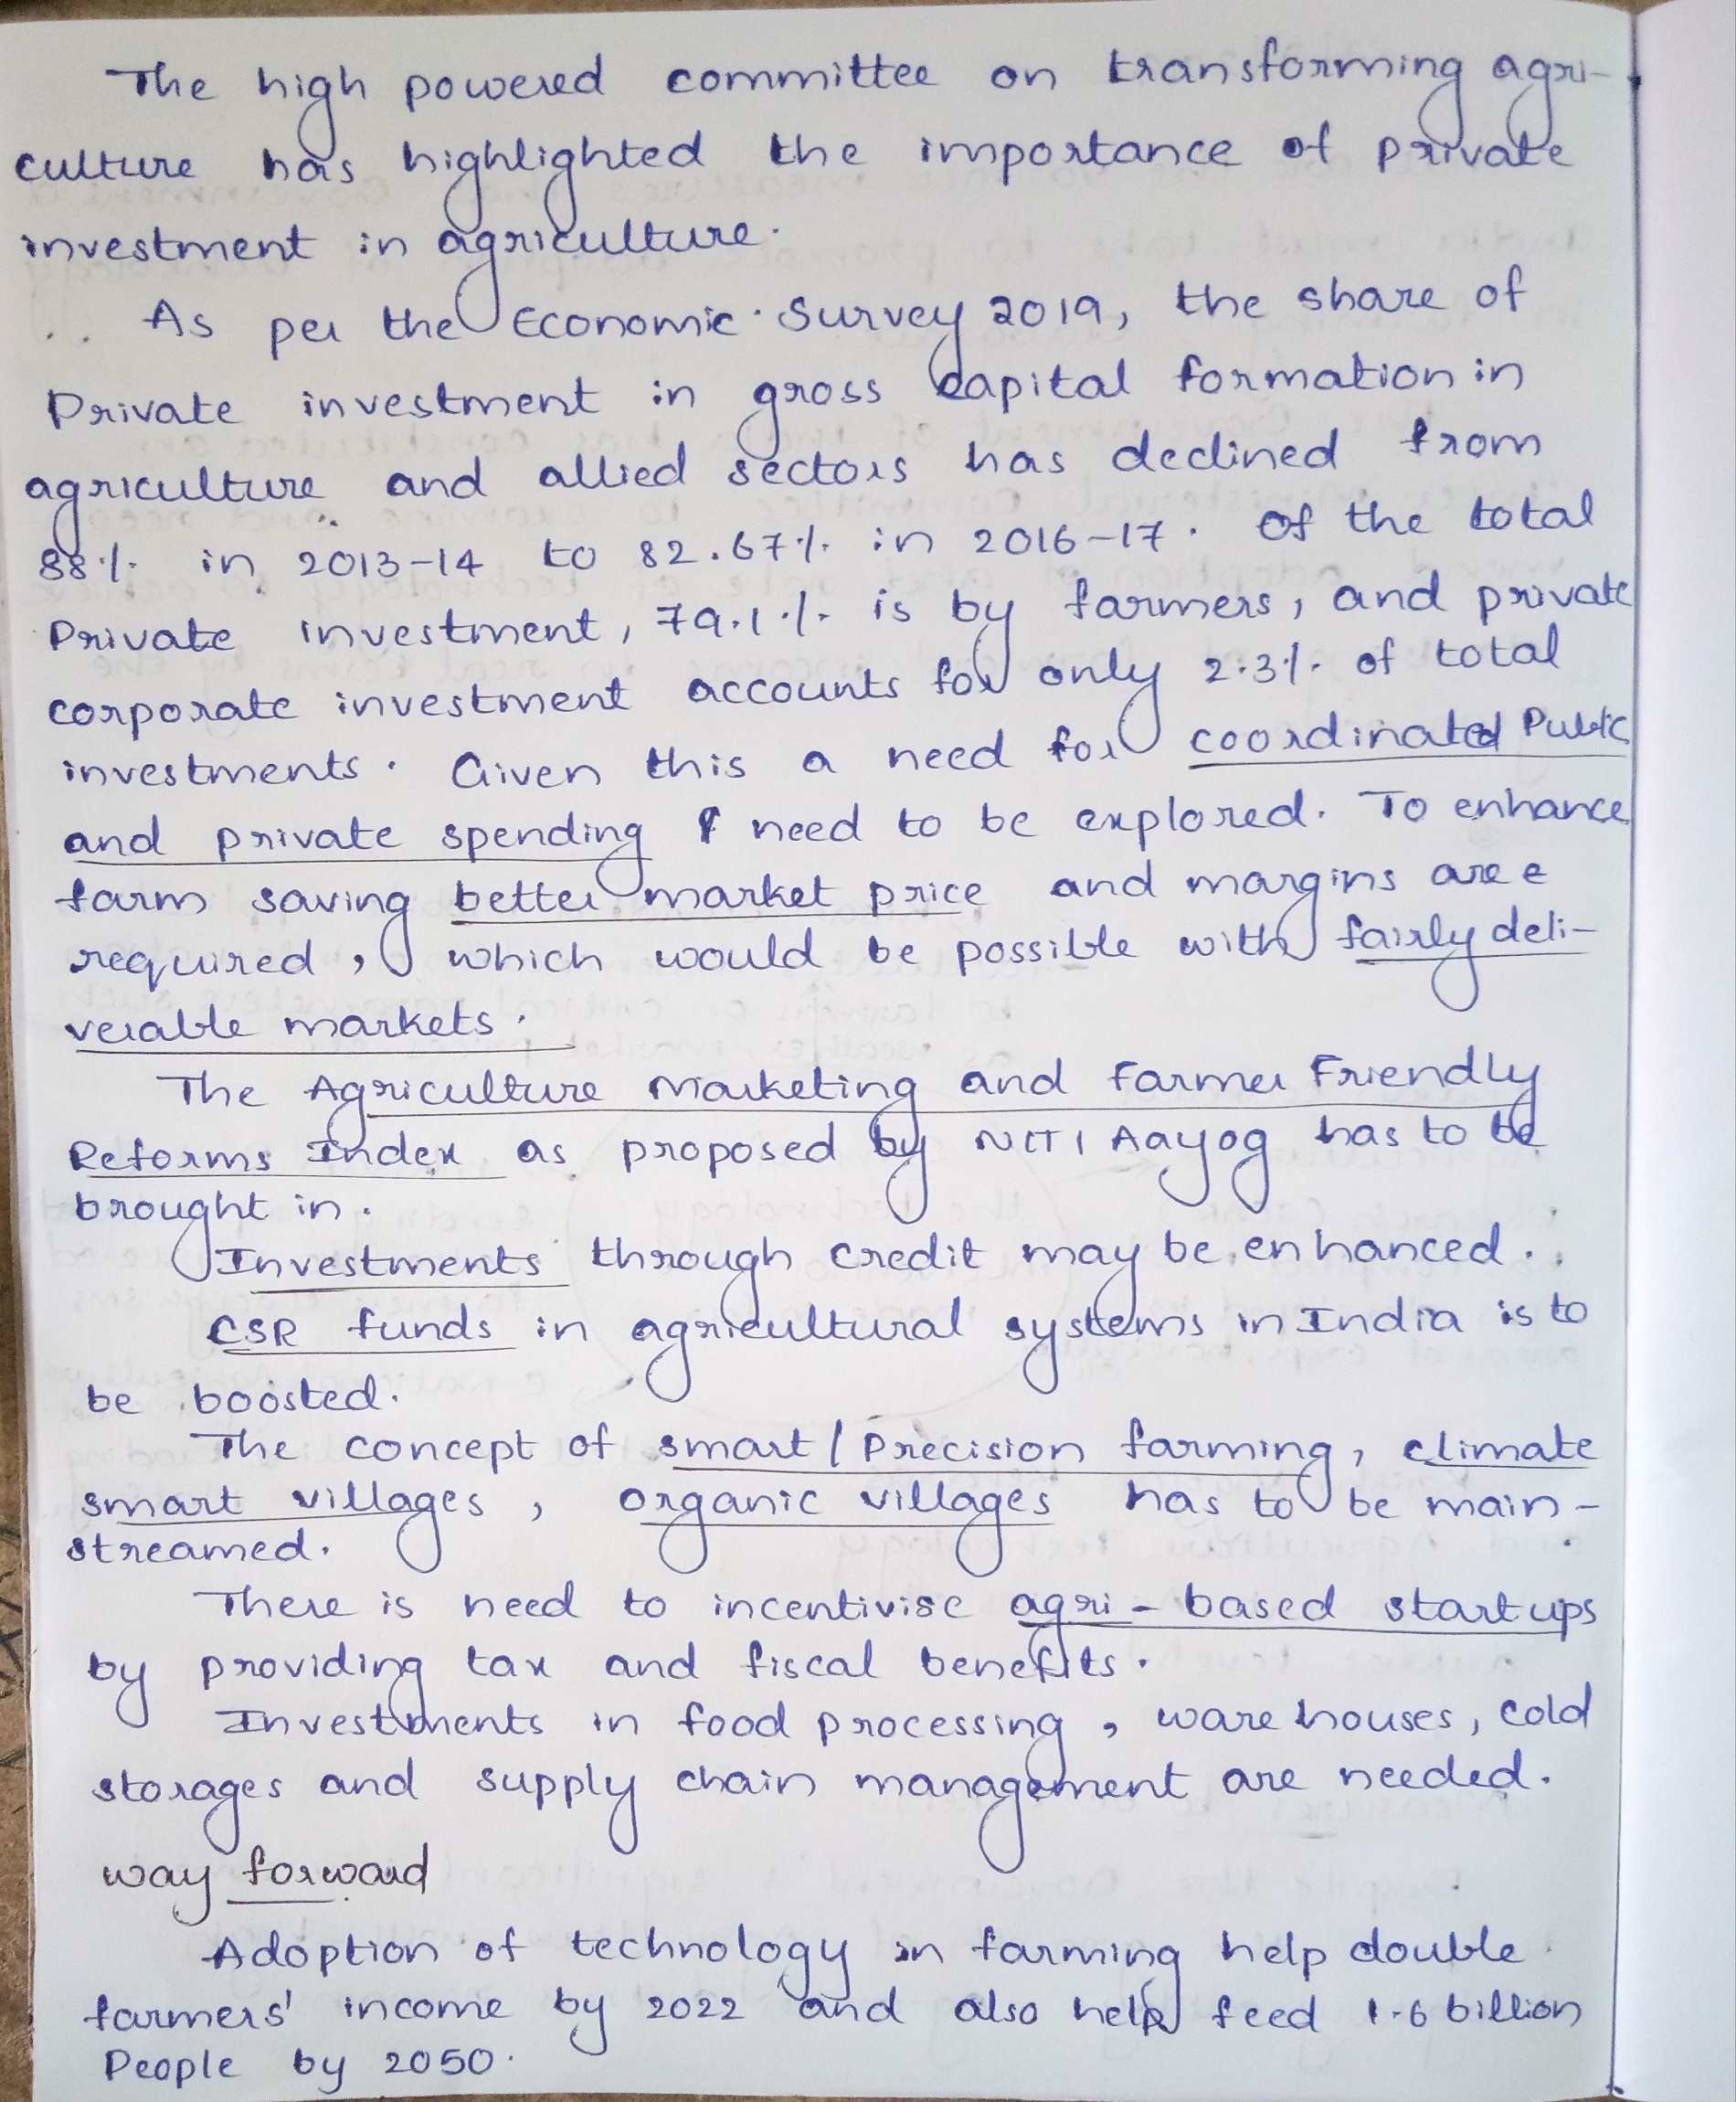 The high powered committee on transforming agri-
culture has highlighted the importance of private
investment in agriculture.
As per the Economic Survey 2019, the share of
Private investment in gross capital formation in
agriculture and allied sectors has declined from
88% in 2013-14 to 82.67% in 2016-17. Of the total
Private investment, 79.1% is by farmers, and private
corporate investment accounts for only 2.3% of total
investments. Given this a need for coordinated Public
and private spending need to be explored. To enhance
farm saving better market price and margins are
required, which would be possible with fairly deli-
verable markets.
The Agriculture Marketing and Farmer Friendly
Reforms Index as proposed by NITI Aayog has to be
brought in.
Investments through credit may be enhanced.
CSR funds in agricultural systems in India is to
be boosted.
The concept of smart / Precision farming, climate
smart villages, organic villages has to be main-
streamed.
There is need to incentivise agri-based startups
by providing tax and fiscal benefits.
Investments in food processing, ware houses, cold
storages and supply chain management are needed.
way forward
Adoption of technology in farming help double
farmers' income by 2022 and also help feed 1.6 billion
People by 2050.